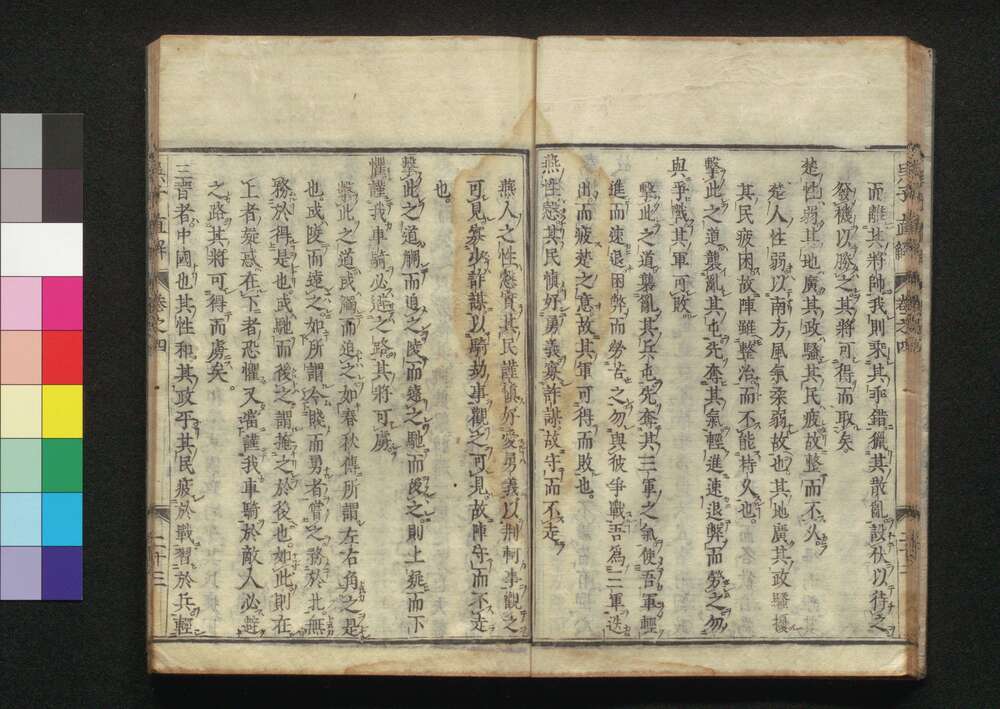 而離其將帥我則乘其乖錯獵其散亂設伏以待之
發機以勝之其將可得而取矣
楚性弱其地廣其政騷其民疲故整而不久
楚人性弱以南方風氣柔弱故也其地廣其政騷擾
其民疲困故陣雖整治而不能持久也
擊此之道襲亂其屯先奪其氣輕進速退弊而勞之勿
與爭戰其軍可敗
擊此之道襲亂其兵屯先奪其三軍之氣使吾軍輕
進而速退困弊而勞苦之勿與彼爭戰吾為二軍迭
出而疲楚之意故其軍可得而敗也
燕性慤其民慎好勇義寡詐謀故守而不走
燕人之性慤實其民謹慎好愛勇義以荊軻事觀之
可見寡少詐謀以騎劫事觀之可見故陣守而不走
也
擊此之道觸而迫之陵而遠之馳而後之則上疑而下
懼謹我車騎必避之路其將可虜
擊此之道或觸而迫之如春秋傳所謂左右角之是
也或陵而遠之如所謂令賤而勇者嘗之務於北無
務於得是也或馳而後之謂掩之於後也如此則在
上者疑惑在下者恐懼又當謹我車騎於敵人必避
之路其將可得而虜矣
三晉者中國也其性和其政平其民疲於戰習於兵輕
吳子直解 卷之四
吳子直解 卷之四 二十三